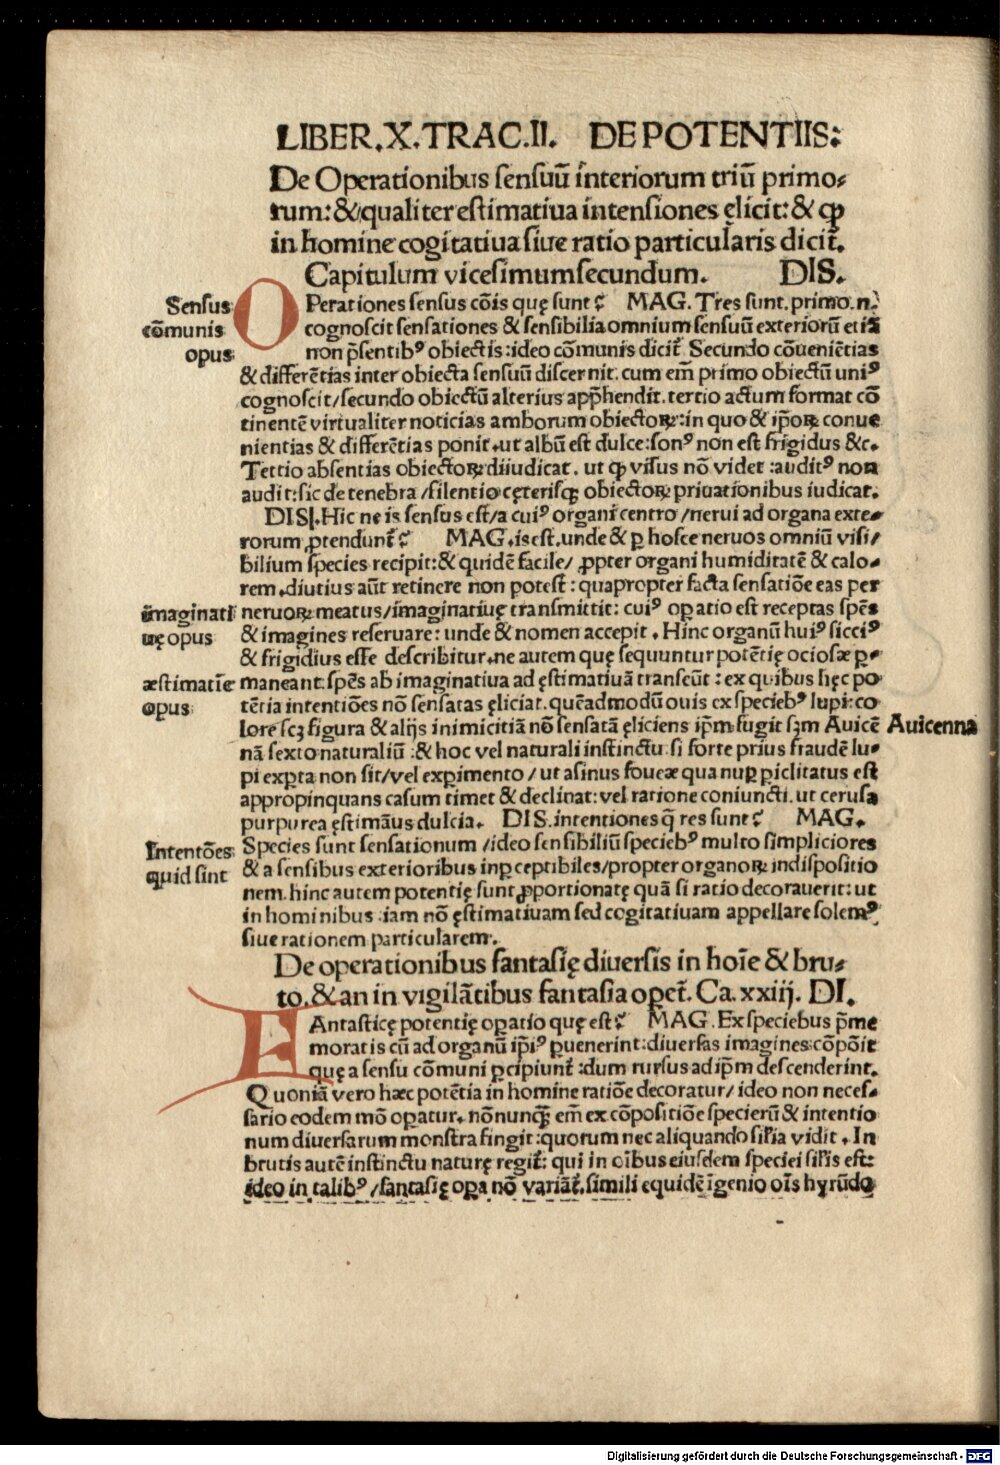 LIBER.X.TRAC.II. DE POTENTIIS:
De Operationibus sensuū interiorum triū primo-
rum: & qualiter estimatiua intensiones ęlicit: & ꝙ
in homine cogitatiua siue ratio particularis dicit̄.
Capitulum vicesimumsecundum. DIS.
Sensus
cōmunis
opus
OPerationes sensus cōis quę sunt? MAG. Tres sunt. primo. n.
cognoscit sensationes & sensibilia omnium sensuū exteriorū etiā
non p̄sentibꝰ obiectis: ideo cōmunis dicit̄. Secundo cōueniētias
& differētias inter obiecta sensuū discernit. cum em̄ primo obiectū uniꝰ
cognoscit/secundo obiectū alterius app̄hendit. tertio actum format cō
tinentē virtualiter noticias amborum obiectoꝝ: in quo & ip̄oꝝ conue
nientias & differētias ponit. ut albū est dulce: sonꝰ non est frigidus &c.
Tertio absentias obiectoꝝ diiudicat. ut ꝙ visus nō videt: auditꝰ non
audit: sic de tenebra/silentio cęterisqꝫ obiectoꝝ priuationibus iudicat.
DIS. Hic ne is sensus est/a cuiꝰ organi centro/nerui ad organa exte-
rorum ꝓtendunt̄? MAG. is est. unde & ꝑ hosce neruos omniū visi/
bilium species recipit: & quidē facile/ ꝓpter organi humiditatē & calo-
rem. diutius aūt retinere non potest: quapropter facta sensatiōe eas per
imaginati
uę opus
neruoꝝ meatus/imaginatiuę transmittit: cuiꝰ oꝑatio est receptas spēs
& imagines reseruare: unde & nomen accepit. Hinc organū huiꝰ sicciꝰ
& frigidius esse describitur. ne autem quę sequuntur potētię ociosæ ꝑ-
æstimatiē
opus
maneant. spēs ab imaginatiua ad ęstimatiuā transeūt: ex quibus hęc po
tētia intentiōes nō sensatas ęliciat. quēadmodū ouis ex speciebꝰ lupi: co
lore scꝫ figura & alijs inimicitiā nō sensatā ęliciens ip̄m fugit sꝫm Auicē
Auicenna
nā sexto naturaliū: & hoc vel naturali instinctu: si forte prius fraudē lu-
pi exꝑta non sit/vel exꝑimento/ ut asinus foueæ qua nuꝑ ꝑiclitatus est
appropinquans casum timet & declinat: vel ratione coniuncti. ut cerusa
purpurea ęstimāus dulcia. DIS. intentiones q̄ res sunt? MAG.
Intentōes
quid sint
Species sunt sensationum/ideo sensibiliū speciebꝰ multo simpliciores
& a sensibus exterioribus inꝑceptibiles/propter organoꝝ indispositio
nem. hinc autem potentię sunt ꝓportionatę quā si ratio decorauerit: ut
in hominibus: iam nō ęstimatiuam sed cogitatiuam appellare solemꝰ
siue rationem particularem.
De operationibus fantasię diuersis in hoīe & bru-
to. & an in vigilātibus fantasia oꝑet̄. Ca. xxiij. DI.
FAntasticę potentię oꝑatio quę est? MAG. Ex speciebus p̄me
moratis cū ad organū ip̄iꝰ ꝑuenerint: diuersas imagines cōpōit
quę a sensu cōmuni ꝑcipiunt̄: dum rursus ad ip̄m descenderint.
Quoniā vero hæc potētia in homine ratiōe decoratur/ ideo non neces-
sario eodem mō oꝑatur. nōnunqꝫ em̄ ex cōpositiōe specierū & intentio
num diuersarum monstra fingit: quorum nec aliquando sił̄ia vidit. In
brutis autē instinctu naturę regit̄: qui in oībus eiusdem speciei sił̄is est:
ideo in talibꝰ/fantasię oꝑa nō variāt̄. simili equidē īgenio oīs hyrūdo
Digitalisierung gefördert durch die Deutsche Forschungsgemeinschaft - DFG